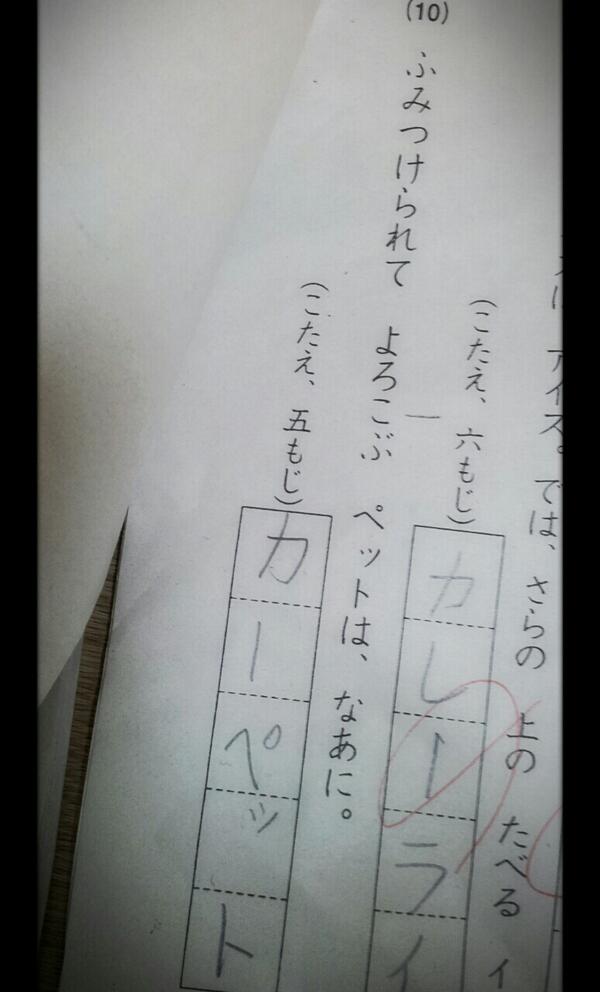 アイス。では、さらの 上の たべる イ
(こたえ、六もじ)
カレーライ
(10)
ふみつけられて よろこぶ ペットは、なあに。
(こたえ、五もじ)
カーペット